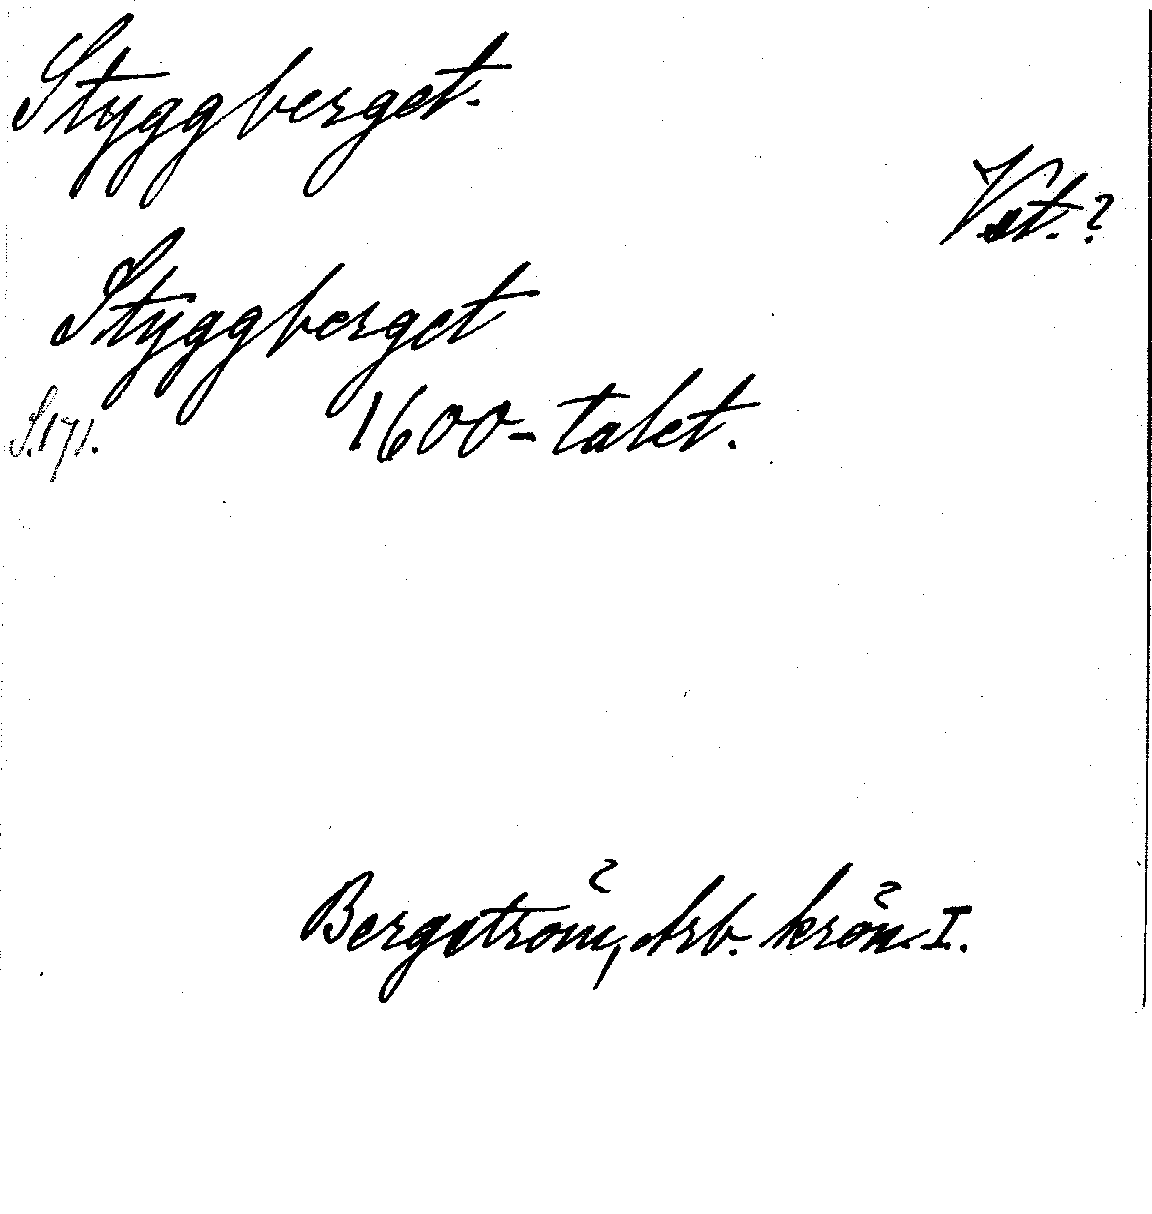 Styggberget.
Vst.?
Styggberget
S.171. 1600-talet.
Bergström, Arb. krön. I.